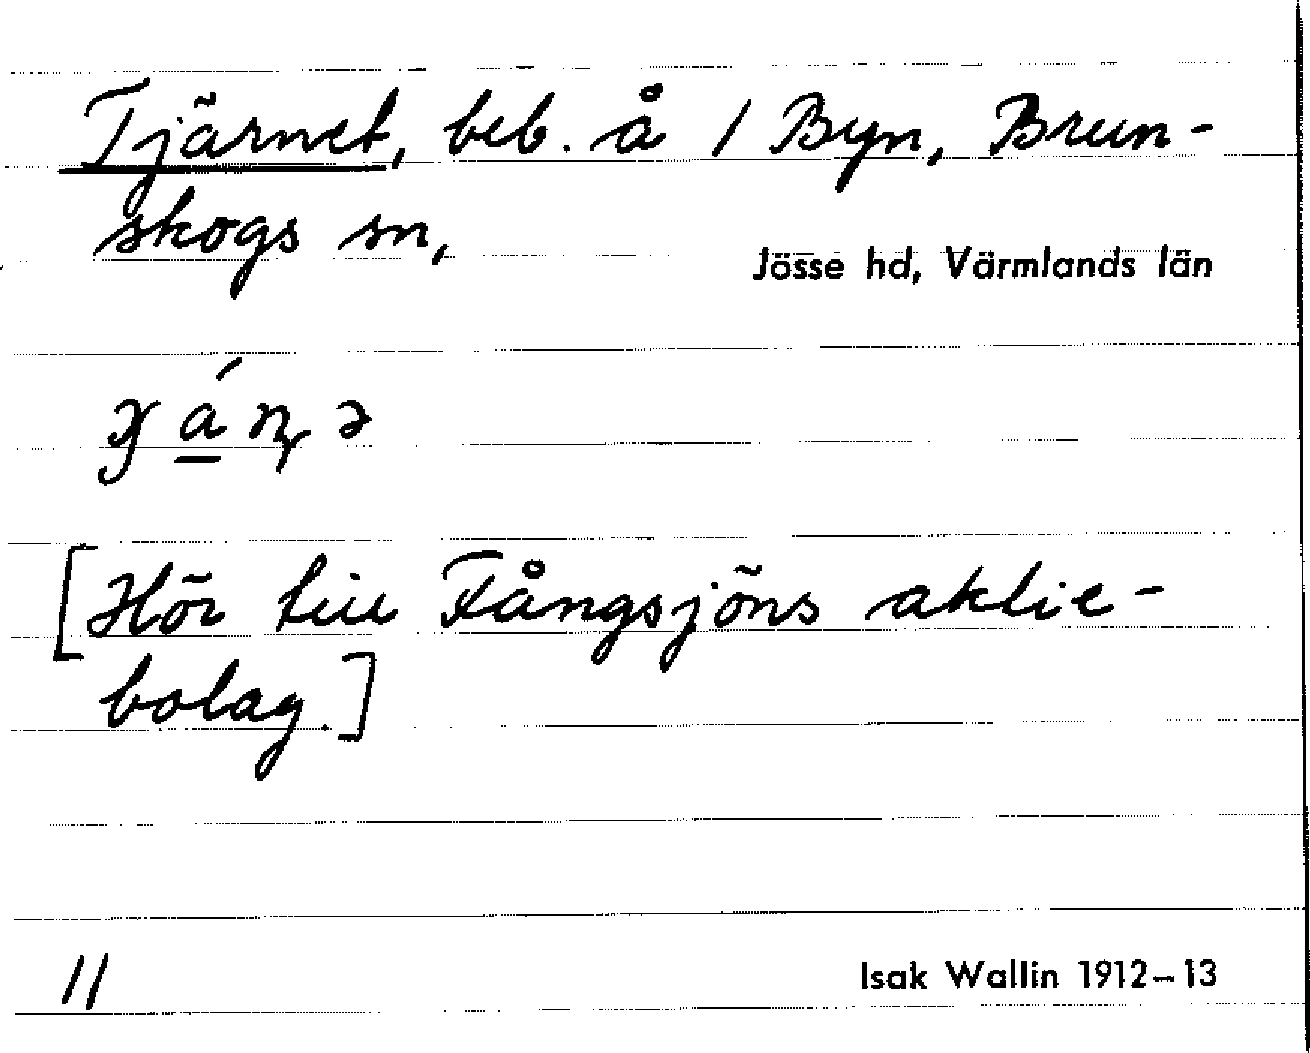 Tjärnet, beb. å / Byn, Brun-
skogs sn,
Jösse hd, Värmlands län
[Hör till Fångsjöns aktie-
bolag.]
11
Isak Wallin 1912–13